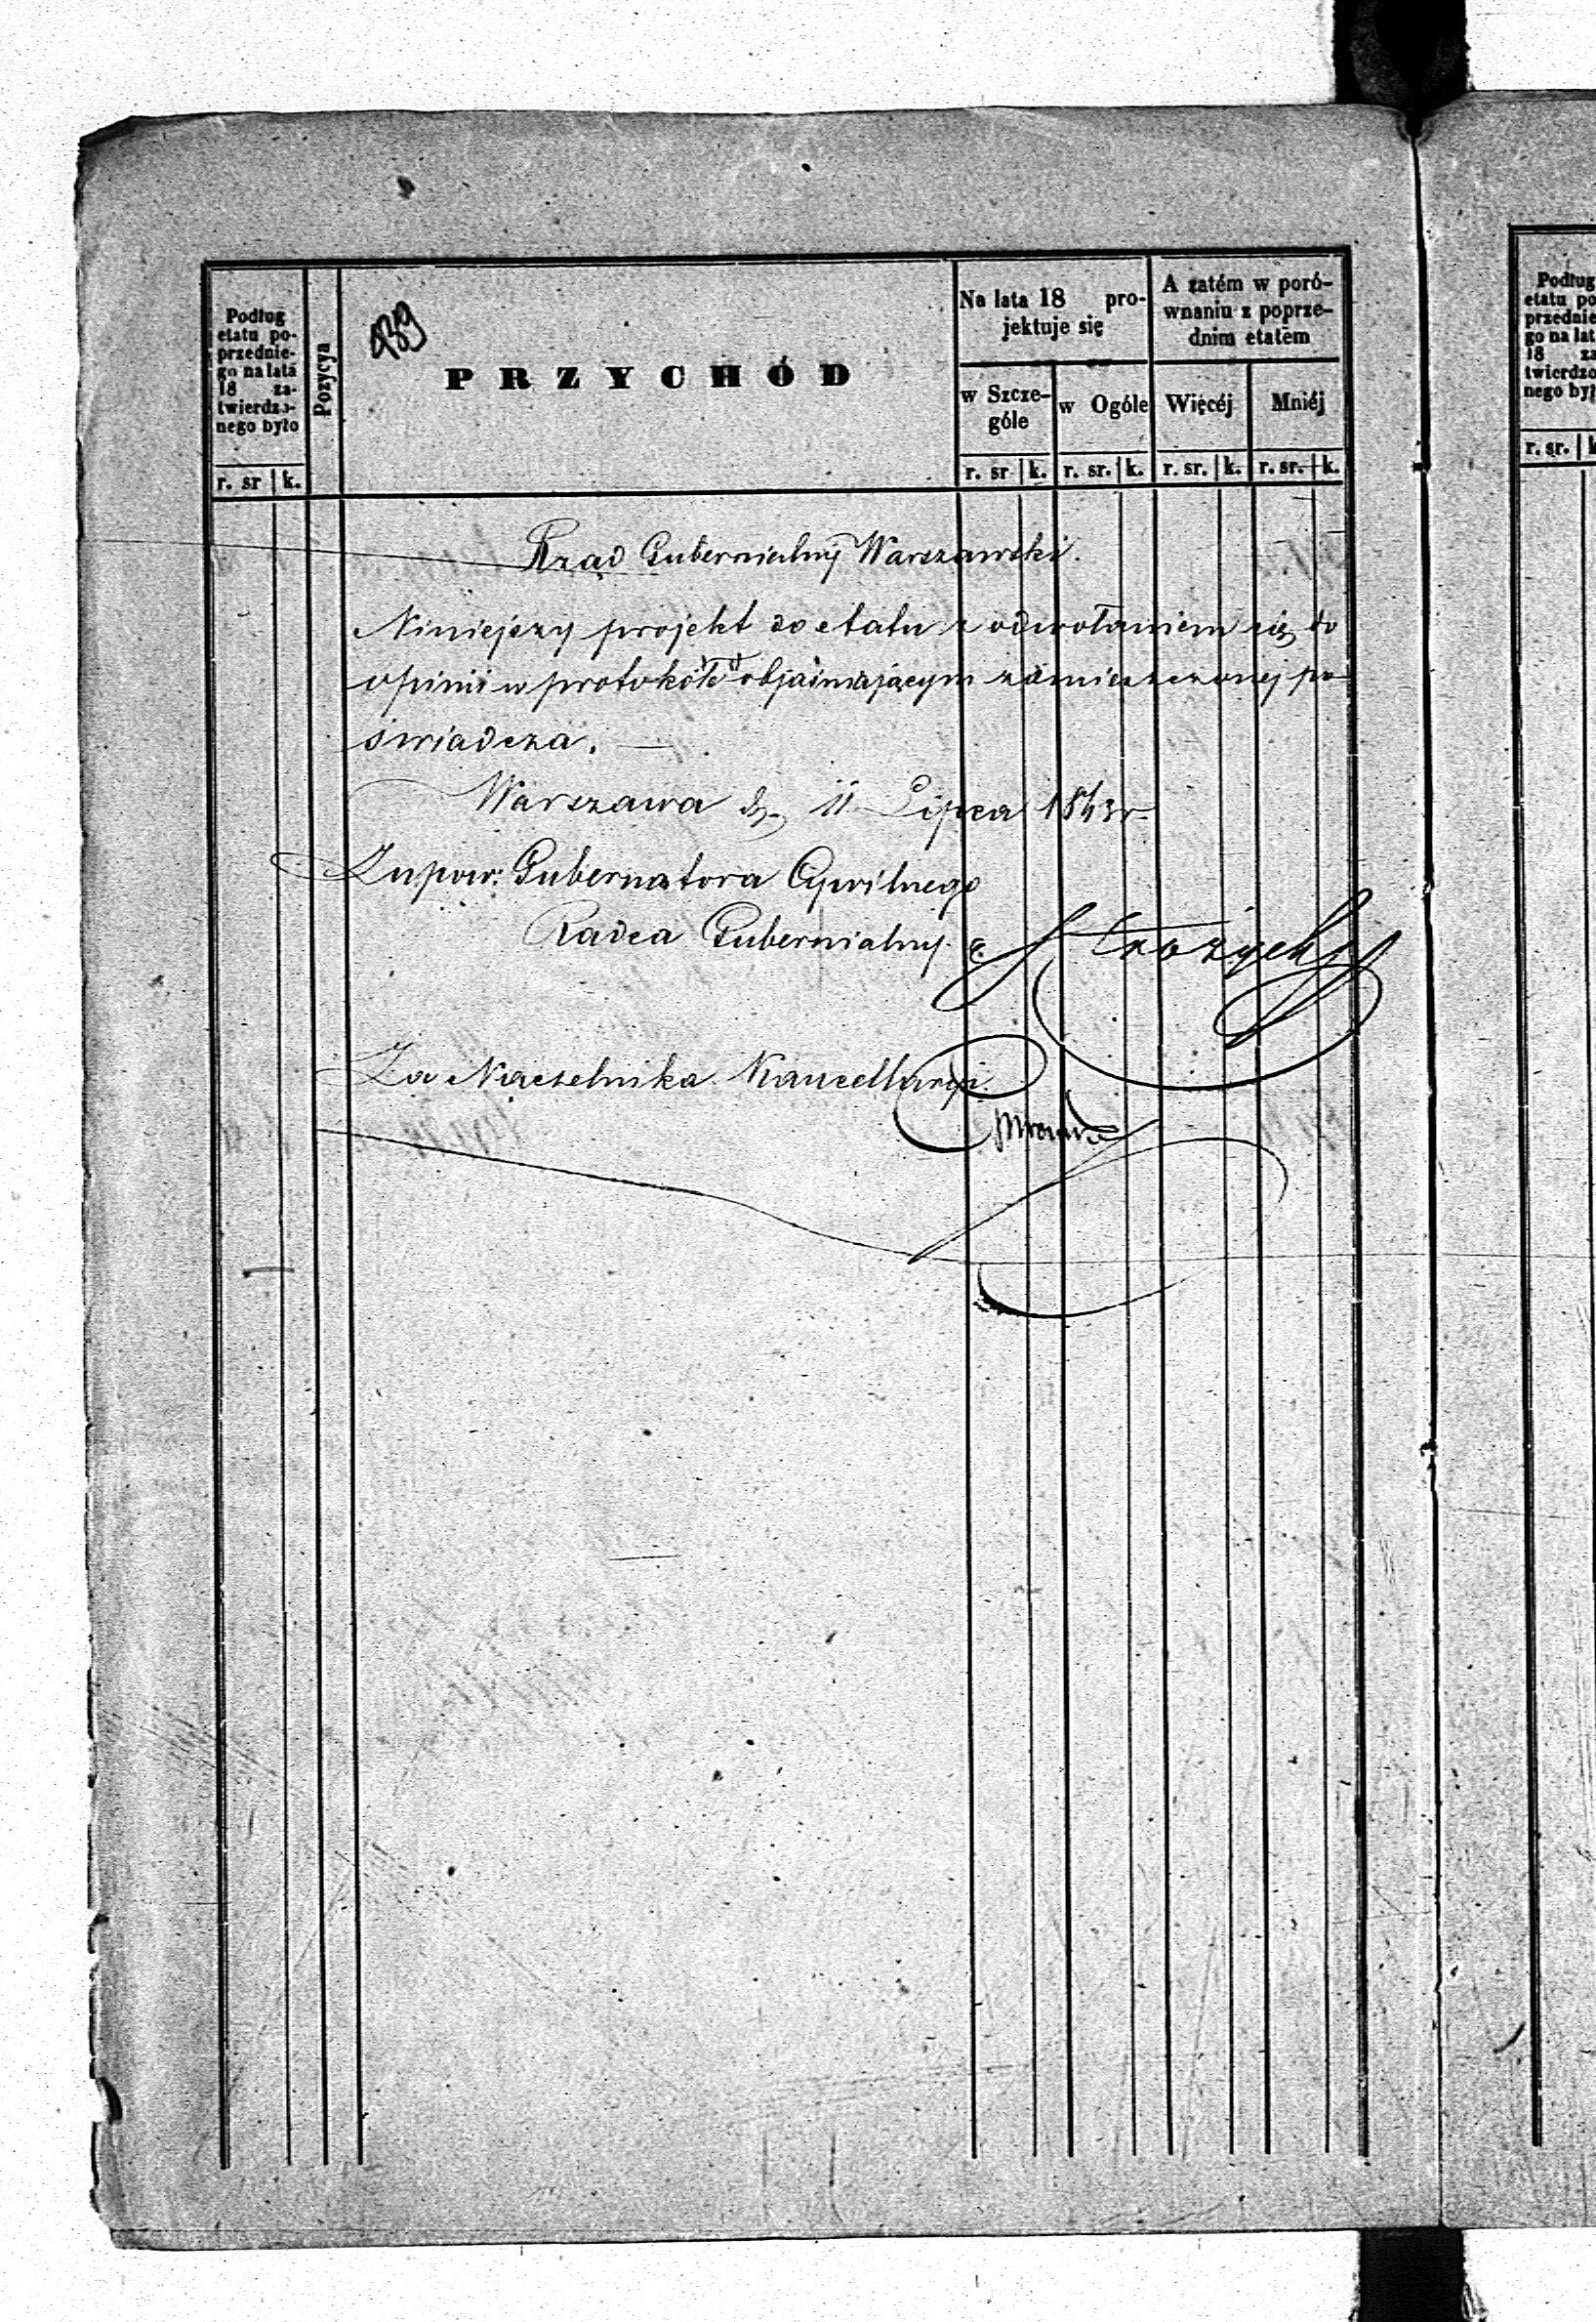 489
Podług
etatu po-
przednie-
go na lata
18 za-
twierdzo-
nego było
Pozycya
PRZYCHÓD
Na lata 18 pro-
jektuje się
A zatém w poró-
wnaniu z poprze-
dnim etatem
w Szcze-
góle
w Ogóle
Więcéj
Mniéj
r. sr k.
r. sr k.
r. sr. k.
r. sr. k.
r. sr. k.
Rząd Gubernialny Warszawski.
Niniejszy projekt do etatu z odwołaniem się do
opinii w protokóle objaśniającym zamieszczonej po-
świadcza.
Warszawa d. 11 Lipca 1843 r.
Z upow: Gubernatora Cywilnego
Radca Gubernialny
Za Naczelnika Kancellaryi
Podług
etatu po
przednie
go na lat
18 za
twierdzo
nego był
r. sr. k